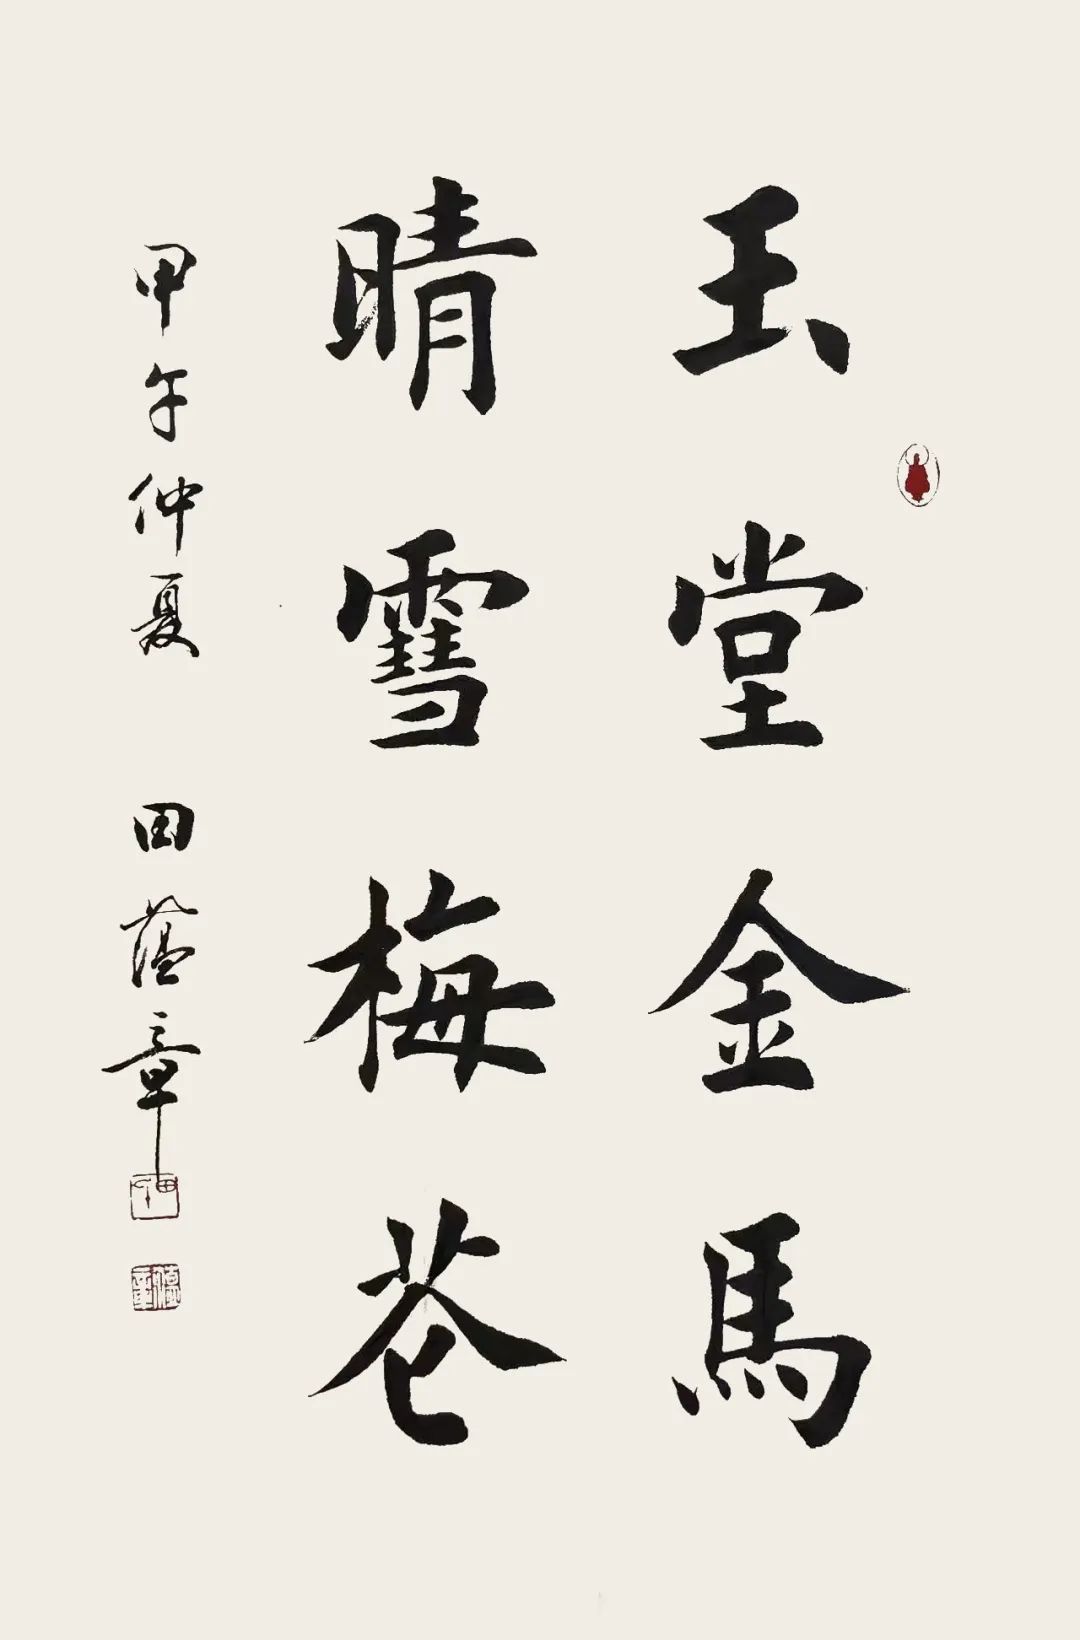 玉堂金馬
晴雪梅芲
甲午仲夏 田薀章